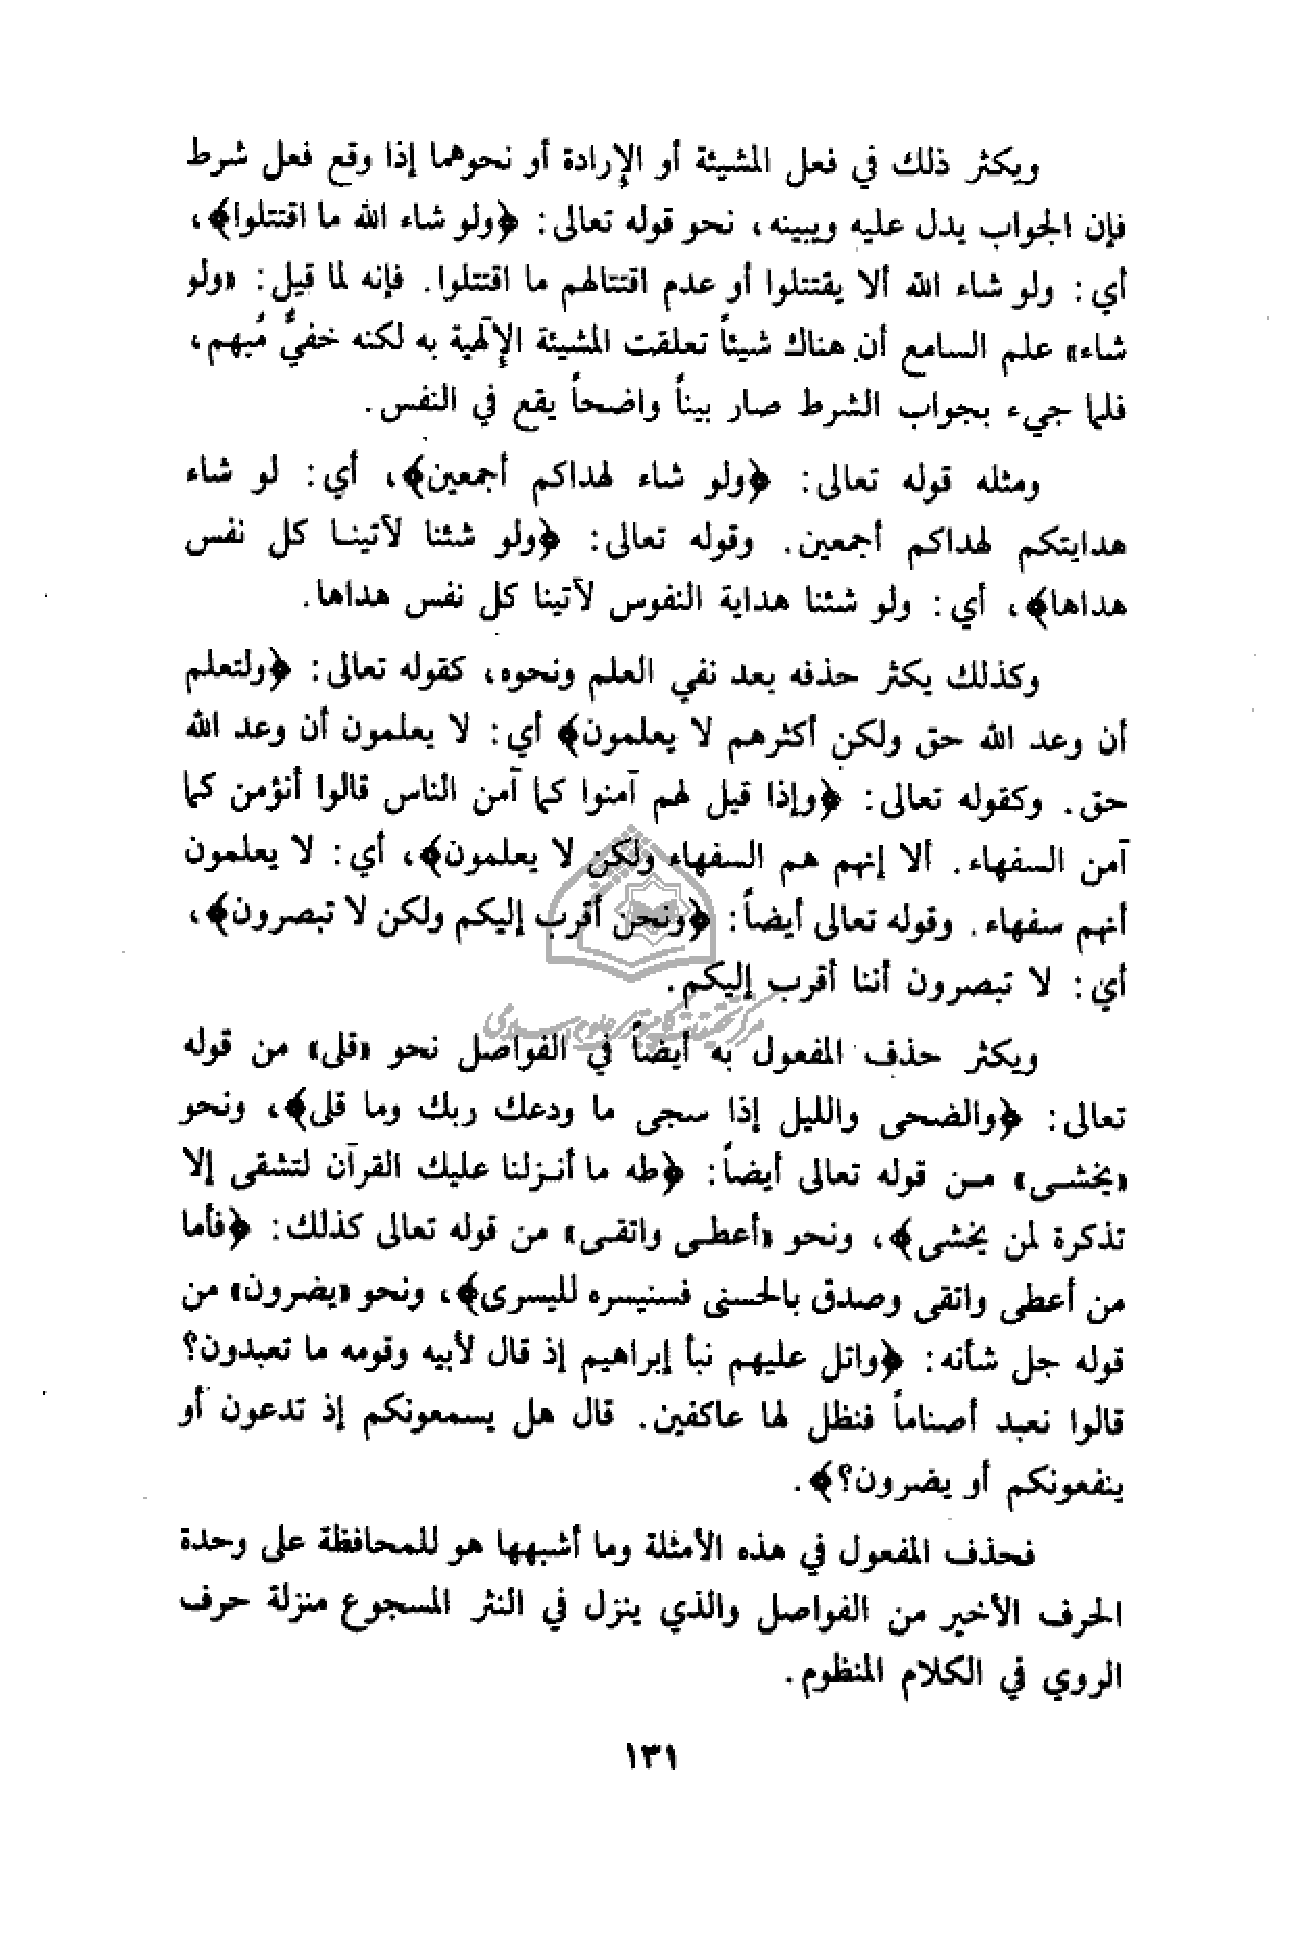 ويكثر ذلك في فعل المشيئة أو الإرادة أو نحوهما إذا وقع فعل شرط
فإن الجواب يدل عليه ويبينه، نحو قوله تعالى: ﴿ولو شاء الله ما اقتتلوا﴾،
أي: ولو شاء الله ألا يقتتلوا أو عدم اقتتالهم ما اقتتلوا. فإنه لما قيل: «ولو
شاء» علم السامع أن هناك شيئاً تعلقت المشيئة الإلٓهية به لكنه خفيٌّ مُبهم،
فلما جيء بجواب الشرط صار بيناً واضحاً يقع في النفس.
ومثله قوله تعالى: ﴿ولو شاء لهداكم أجمعين﴾، أي: لو شاء
هدايتكم لهداكم أجمعين. وقوله تعالى: ﴿ولو شئنا لآتينا كل نفس
هداها﴾، أي: ولو شئنا هداية النفوس لآتينا كل نفس هداها.
وكذلك يكثر حذفه بعد نفي العلم ونحوه، كقوله تعالى: ﴿ولتعلم
أن وعد الله حق ولكن أكثرهم لا يعلمون﴾ أي: لا يعلمون أن وعد الله
حق. وكقوله تعالى: ﴿وإذا قيل لهم آمنوا كما آمن الناس قالوا أنؤمن كما
آمن السفهاء. ألا إنهم هم السفهاء ولكن لا يعلمون﴾، أي: لا يعلمون
أنهم سفهاء. وقوله تعالى أيضاً: ﴿ونحن أقرب إليكم ولكن لا تبصرون﴾،
أي: لا تبصرون أننا أقرب إليكم.
ويكثر حذف المفعول به أيضاً في الفواصل نحو «قلى» من قوله
تعالى: ﴿والضحى والليل إذا سجى ما ودعك ربك وما قلى﴾، ونحو
«يخشـى» مـن قوله تعالى أيضاً: ﴿طه ما أنـزلنا عليك القرآن لتشقى إلا
تذكرة لمن يخشى﴾، ونحو «أعطـى واتقـى» من قوله تعالى كذلك: ﴿فأما
من أعطى واتقى وصدق بالحسنى فسنيسره لليسرى﴾، ونحو «يضرون» من
قوله جل شأنه: ﴿واتل عليهم نبأ إبراهيم إذ قال لأبيه وقومه ما تعبدون؟
قالوا نعبد أصناماً فنظل لها عاكفين. قال هل يسمعونكم إذ تدعون أو
ينفعونكم أو يضرون؟﴾.
فحذف المفعول في هذه الأمثلة وما أشبهها هو للمحافظة على وحدة
الحرف الأخير من الفواصل والذي ينزل في النثر المسجوع منزلة حرف
الروي في الكلام المنظوم.
١٣١